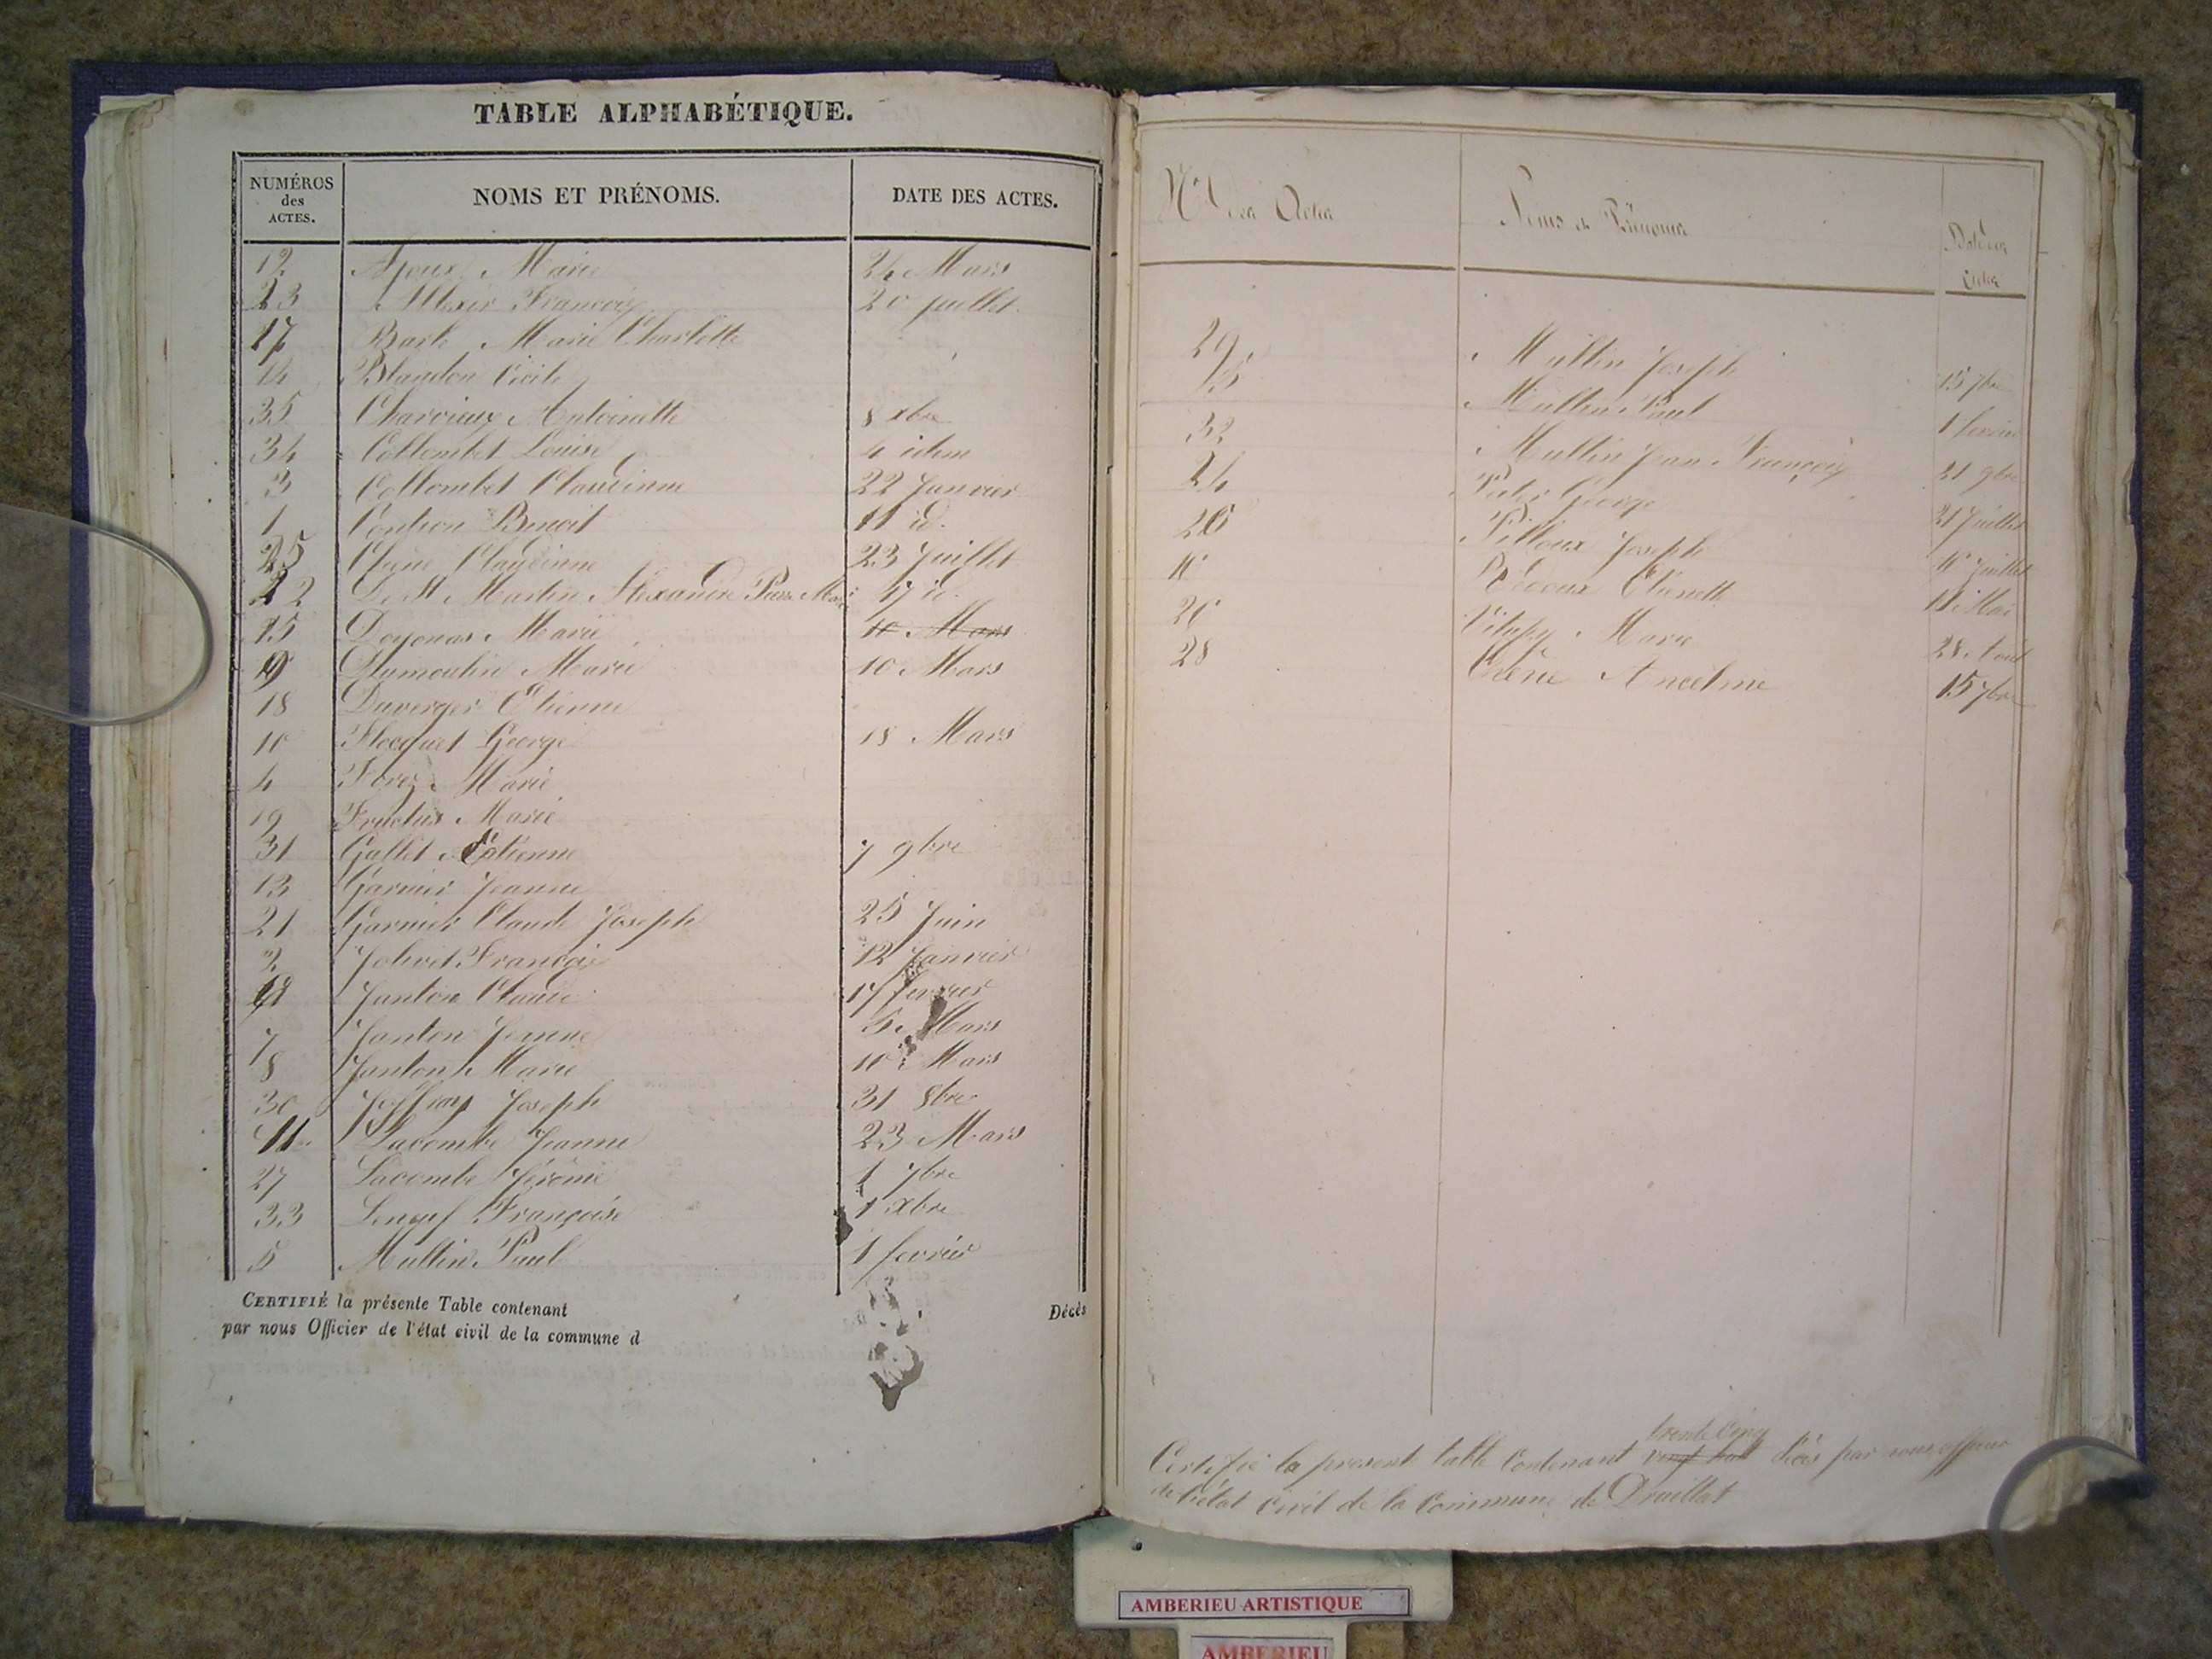 TABLE ALPHABÉTIQUE.
NUMÉROS des ACTES. NOMS ET PRÉNOMS. DATE DES ACTES.
12 Marie 24 Mars
23 François 20 juillet
17 Marie Charlotte
14 Blandon Cécile
35 Charvieux Antoinette 8 xbre
34 Collombet Louise 4 idem
3 Collombet Claudine 22 Janvier
1 Benoit 11 id.
25 Claudine 23 Juillet
22 De St Martin Alexandre Pierre Marie 17 id.
15 Marie 10 Mars
9 Dumoulin Marie 10 Mars
18 Duverger Etienne
10 Flocquet George 18 Mars
4 Forez Marie
19 Fructus Marie
31 Gallet 7 9bre
13 Garnier Jeanne
21 Garnier Claude Joseph 25 Juin
2 Jolivet François 12 Janvier
Janton Claude 17 fevrier
7 Janton Jeanne 5 Mars
8 Janton Marie 10 Mars
30 Joffray Joseph 31 8bre
11 Lacombe Jeanne 23 Mars
27 Lacombe Jérémie 1 7bre
33 Françoise 1 xbre
5 Multin Paul 1 fevrier
CERTIFIÉ la présente Table contenant Décès
par nous Officier de l'état civil de la commune d
Nos des Actes Noms et Prénoms Date des Actes
29 Multin Joseph 15 7bre
5 Multin Paul 1 fevrier
32 Multin Jean François 21 9bre
24 George 21 Juillet
26 Pilloux Joseph Juillet
Mai
20 Marie 28
28 15 7bre
trente cinq
Certifié la presente table Contenant vingt huit décès par nous officier
de l'état Civil de la Commune de Druillat
AMBERIEU ARTISTIQUE
AMBERIEU